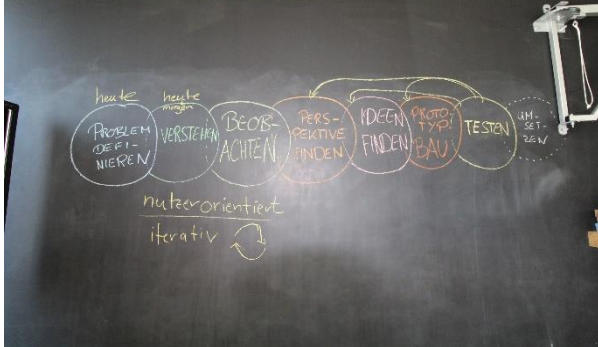 heute
heute
morgen
PROBLEM
DEFI-
NIEREN
VERSTEHEN
BEOB-
ACHTEN
PERS-
PEKTIVE
FINDEN
IDEEN
FINDEN
PROTO-
TYP-
BAU
TESTEN
UM-
SET-
ZEN
nutzerorientiert
iterativ